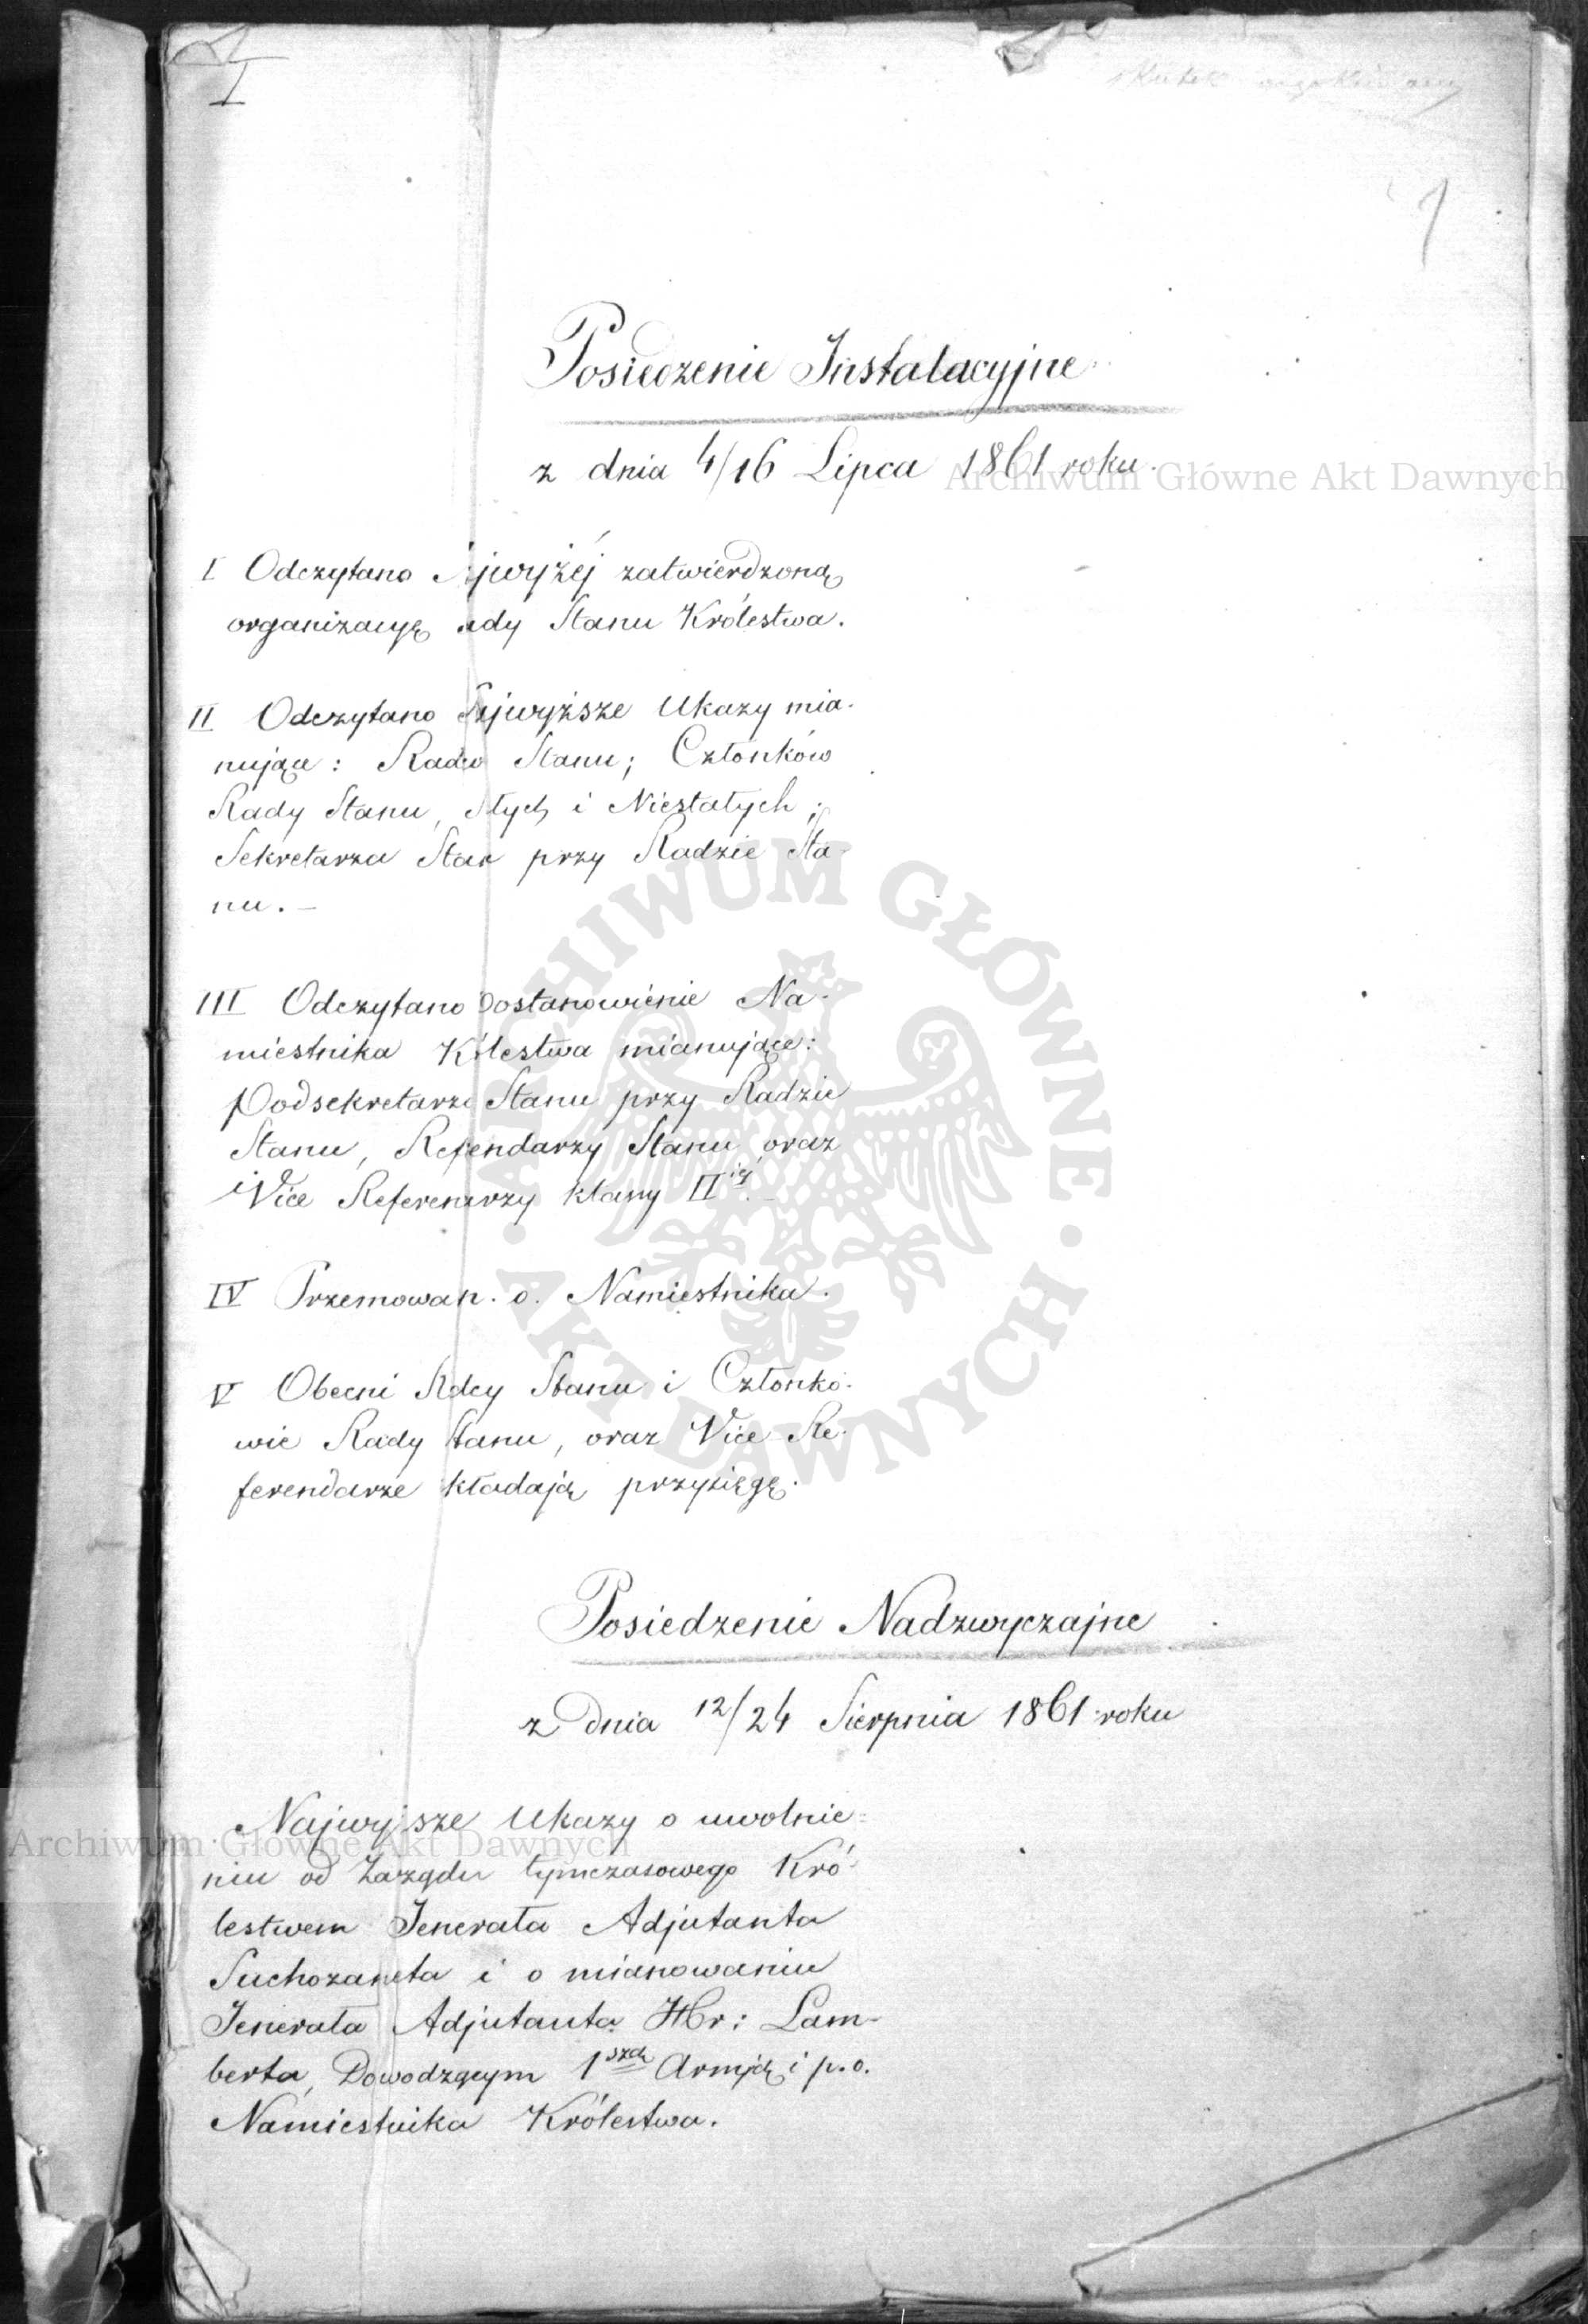 I
1
Posiedzenie Instalacyjne
z dnia 4/16 Lipca 1861 roku.
Archiwum Główne Akt Dawnych
I Odczytano jwyżéj zatwierdzoną
organizacyę ady Stanu Królestwa.
II Odczytano jwyższe Ukazy mia-
nujące: Radw Stanu; Członków
Rady Stanu, Stych i Niestałych;
Sekretarza Stan przy Radzie Sta-
nu. –
III Odczytano Postanowienie Na-
miestnika Królestwa mianujące:
Podsekretarza Stanu przy Radzie
Stanu, Referendarzy Stanu oraz
Vice Referenarzy klassy IIiéj. –
IV Przemowa p. o. Namiestnika.
V Obecni Radcy Stanu i Członko-
wie Rady Stanu, oraz Vice Re-
ferendarze kładają przysięgę.
ARCHIWUM GŁÓWNE · AKT DAWNYCH ·
Posiedzenie Nadzwyczajne
z dnia 12/24 Sierpnia 1861 roku
Najwyższe Ukazy o uwolnie-
Archiwum Główne Akt Dawnych
niu od Zarządu tymczasowego Kró-
lestwem Jenerała Adjutanta
Suchozaneta i o mianowaniu
Jenerała Adjutanta Hr: Lam-
berta, Dowodzącym 1szą Armją i p.o.
Namiestnika Królestwa.